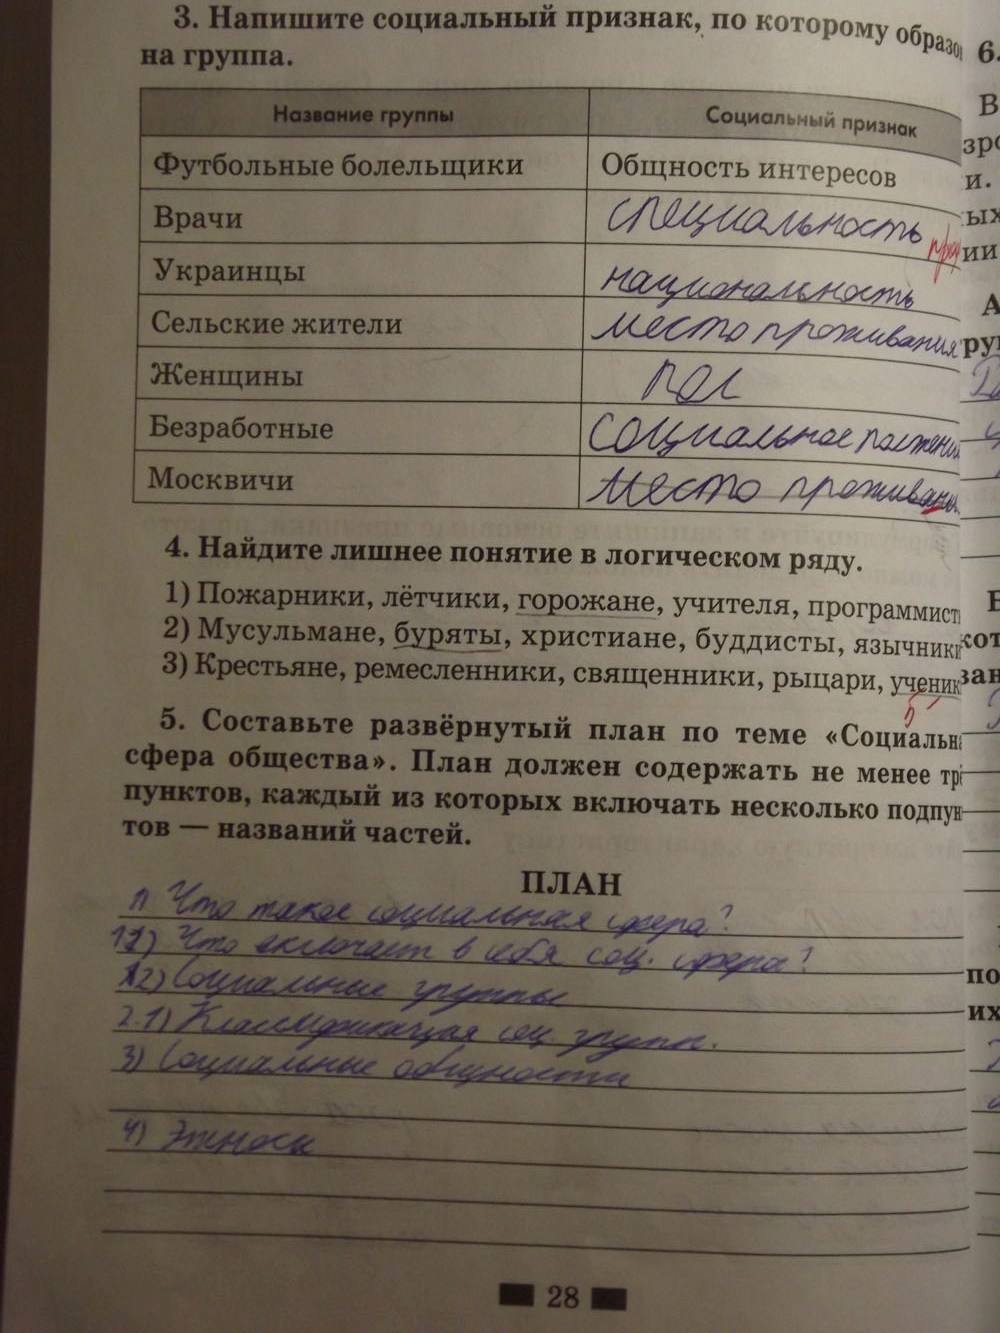 3. Напишите социальный признак, по которому образо
на группа.
Название группы Социальный признак
Футбольные болельщики Общность интересов
Врачи специальность
Украинцы национальность
Сельские жители место проживания
Женщины пол
Безработные социальное положени
Москвичи место проживания
4. Найдите лишнее понятие в логическом ряду.
1) Пожарники, лётчики, горожане, учителя, программист
2) Мусульмане, буряты, христиане, буддисты, язычники
3) Крестьяне, ремесленники, священники, рыцари, ученик
5
5. Составьте развёрнутый план по теме «Социальн
сфера общества». План должен содержать не менее тр
пунктов, каждый из которых включать несколько подпун
тов — названий частей.
ПЛАН
1) Что такое социальная сфера?
Что включает в себя соц. сфера?
2) Социальные группы
2.1) Классификация соц. групп.
3) Социальные общности
4) Этносы
28
6.
В
зро
и.
ых
ии
А
руп
кот
зан
по
их